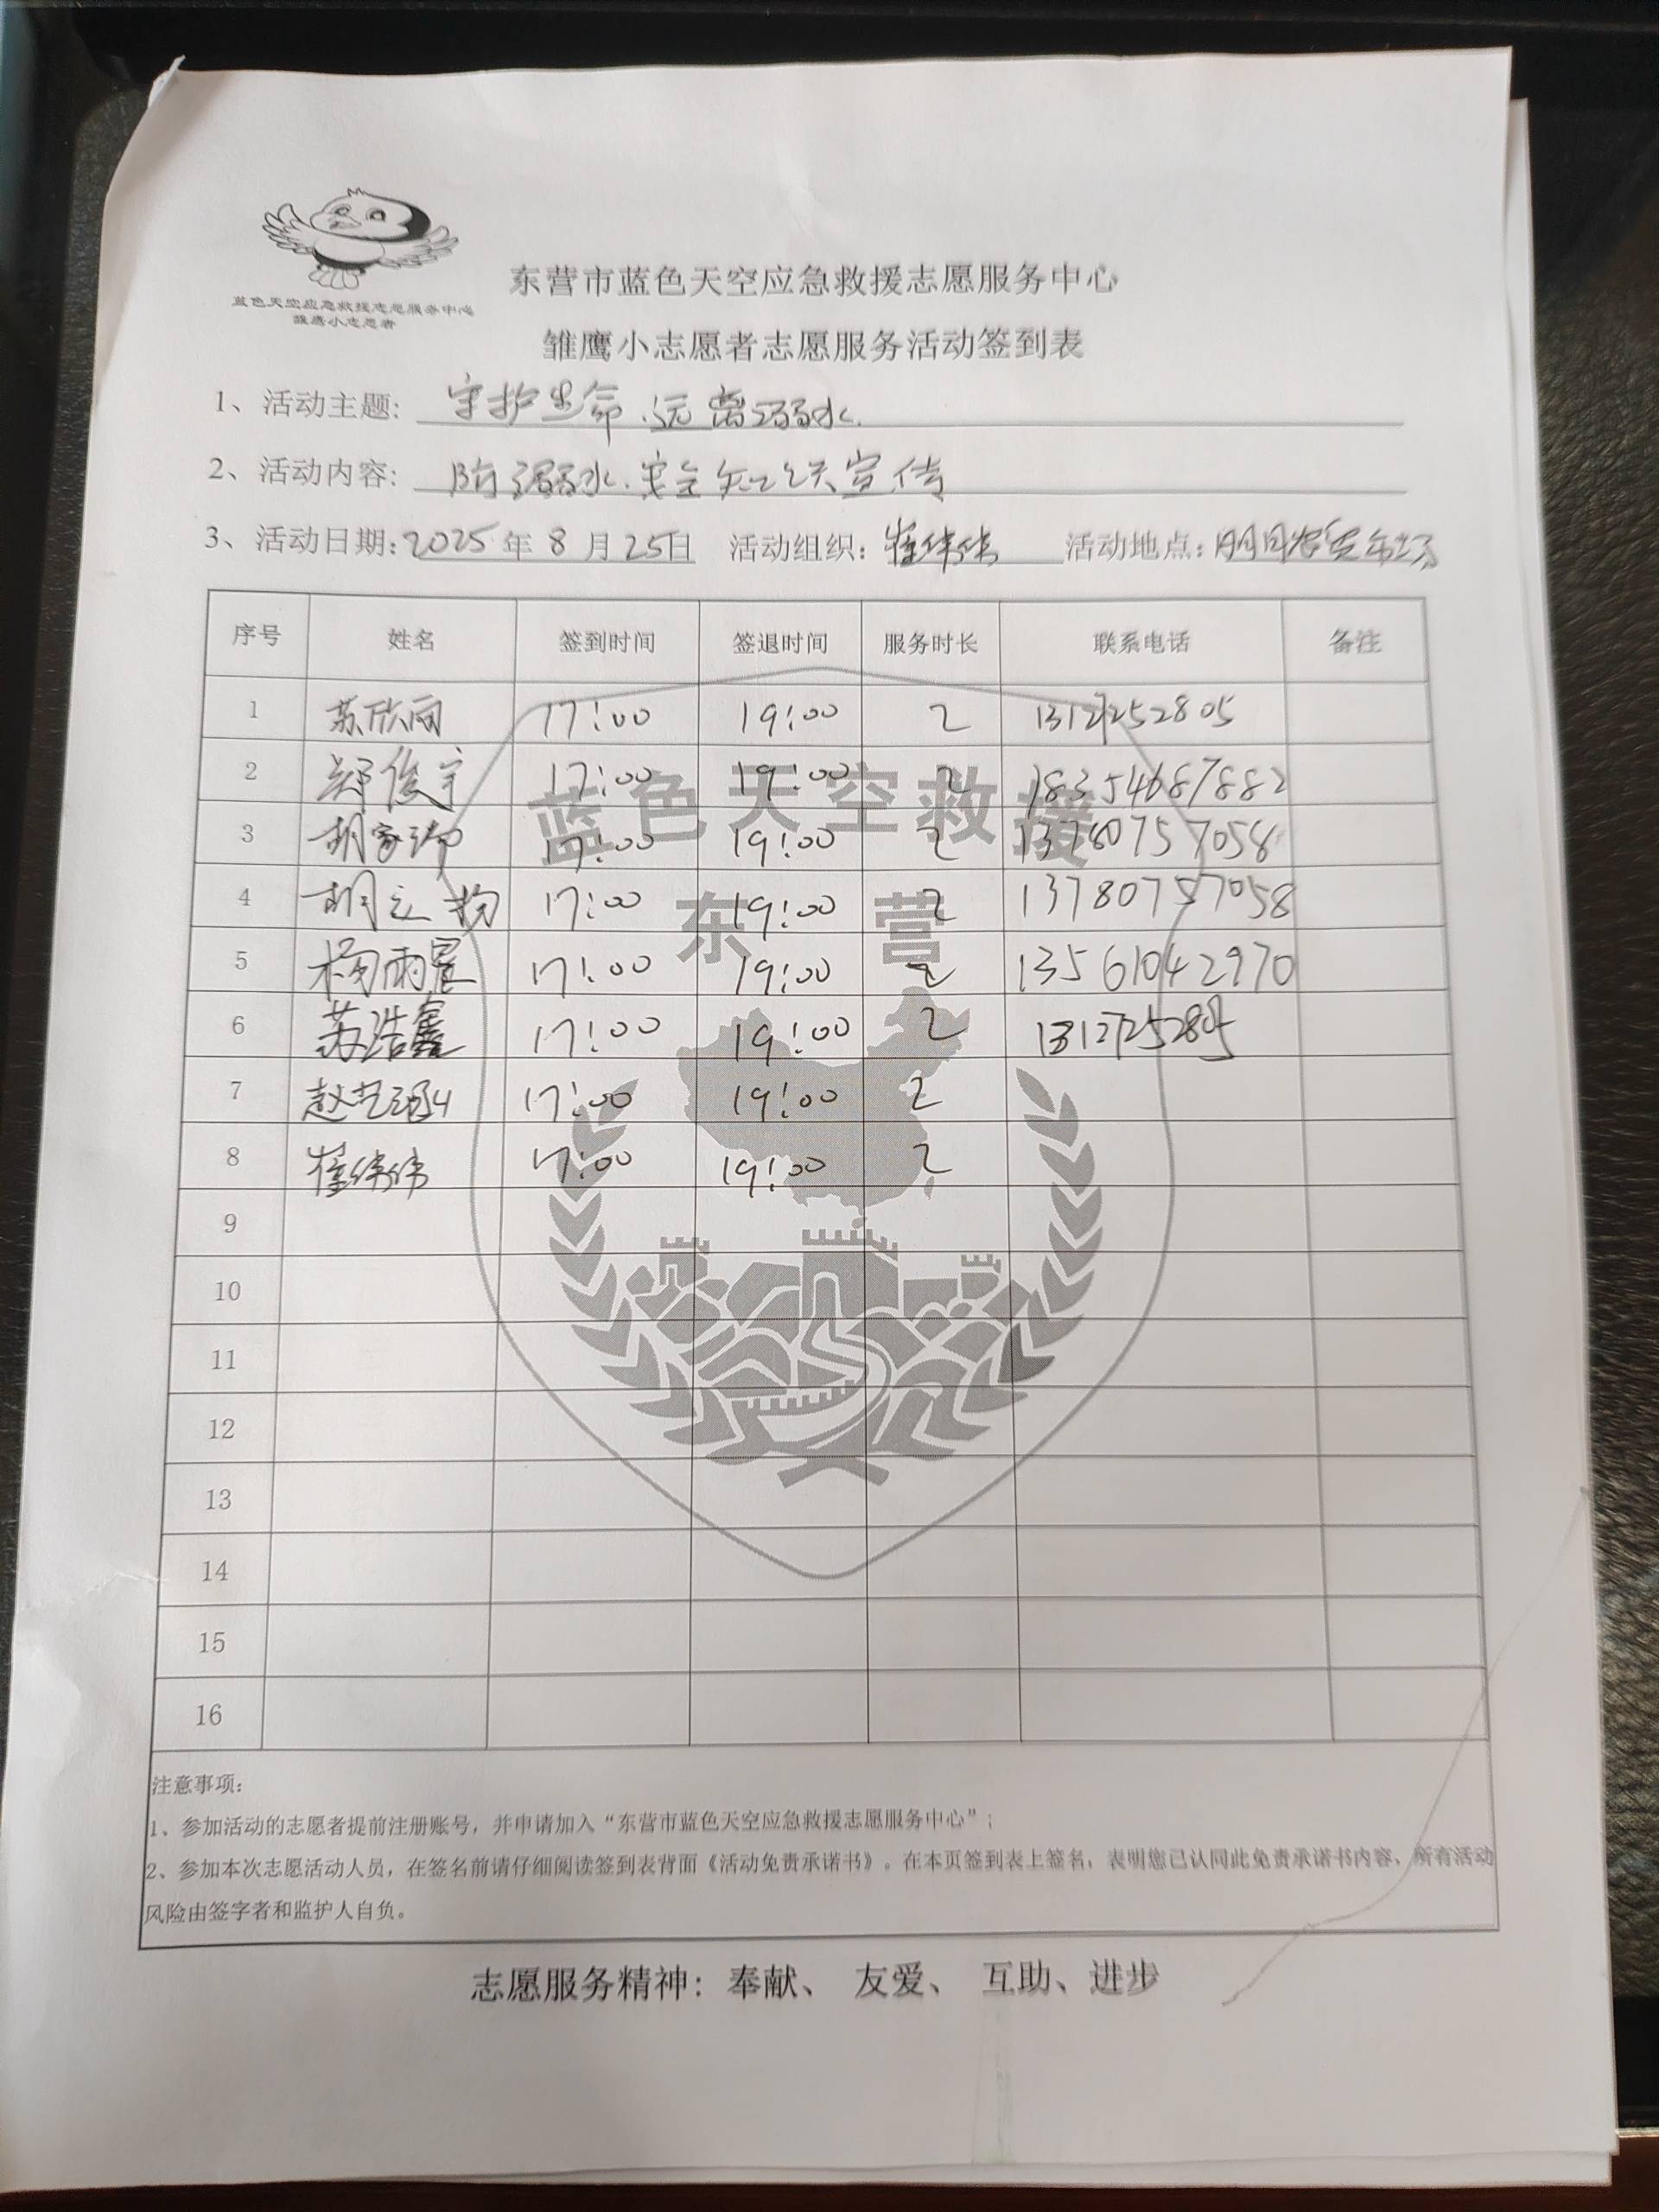 蓝色天空应急救援志愿服务中心
雏鹰小志愿者
东营市蓝色天空应急救援志愿服务中心
雏鹰小志愿者志愿服务活动签到表
1、活动主题: 守护生命.远离溺水.
2、活动内容: 防溺水.安全知识宣传
3、活动日期: 2025年 8 月 25日 活动组织: 崔伟伟 活动地点:
序号 姓名 签到时间 签退时间 服务时长 联系电话 备注
1 苏欣雨 17:00 19:00 2 13127252805
2 郑俊宇 17:00 19:00 2 18354687882
3 胡家瑞 17:00 19:00 2 13780757058
4 胡立扬 17:00 19:00 2 13780757058
5 杨雨星 17:00 19:00 2 13561042970
6 苏浩鑫 17:00 19:00 2
7 赵艺涵 17:00 19:00 2
8 崔伟伟 17:00 19:00 2
9
10
11
12
13
14
15
16
蓝色天空救援
东营
注意事项:
1、参加活动的志愿者提前注册账号，并申请加入“东营市蓝色天空应急救援志愿服务中心”;
2、参加本次志愿活动人员，在签名前请仔细阅读签到表背面《活动免责承诺书》。在本页签到表上签名，表明您已认同此免责承诺书内容，所有活动
风险由签字者和监护人自负。
志愿服务精神: 奉献、 友爱、 互助、进步